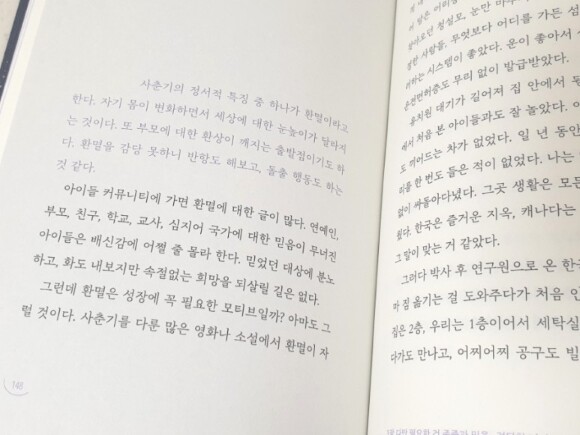 사춘기의 정서적 특징 중 하나가 환멸이라고
한다. 자기 몸이 변화하면서 세상에 대한 눈높이가 달라지
는 것이다. 또 부모에 대한 환상이 깨지는 출발점이기도 하
다. 환멸을 감당 못하니 반항도 해보고, 돌출 행동도 하는
것 같다.
아이들 커뮤니티에 가면 환멸에 대한 글이 많다. 연예인,
부모, 친구, 학교, 교사, 심지어 국가에 대한 믿음이 무너진
아이들은 배신감에 어쩔 줄 몰라 한다. 믿었던 대상에 분노
하고, 화도 내보지만 속절없는 희망을 되살릴 길은 없다.
그런데 환멸은 성장에 꼭 필요한 모티브일까? 아마도 그
럴 것이다. 사춘기를 다룬 많은 영화나 소설에서 환멸이 자
148
정한 사람들. 무엇보다 어디를 가든 섬
려하는 시스템이 좋았다. 운이 좋아서
운전면허증도 무리 없이 발급받았다.
유치원 대기가 길어져 집 안에서 동
에서 처음 본 아이들과도 잘 놀았다.
도 끼어드는 차가 없었다. 일 년 동안
리를 한 번도 들은 적이 없었다. 나는
없이 싸돌아다녔다. 그곳 생활은 모든
웠다. 한국은 즐거운 지옥, 캐나다는
그 말이 맞는 거 같았다.
그러다 박사 후 연구원으로 온 한국
마 짐 옮기는 걸 도와주다가 처음 인
집은 2층, 우리는 1층이어서 세탁실
다가도 만나고, 어찌어찌 공구도 빌